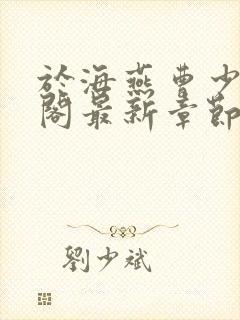 於海燕曹少
閣最新章節
劉少斌